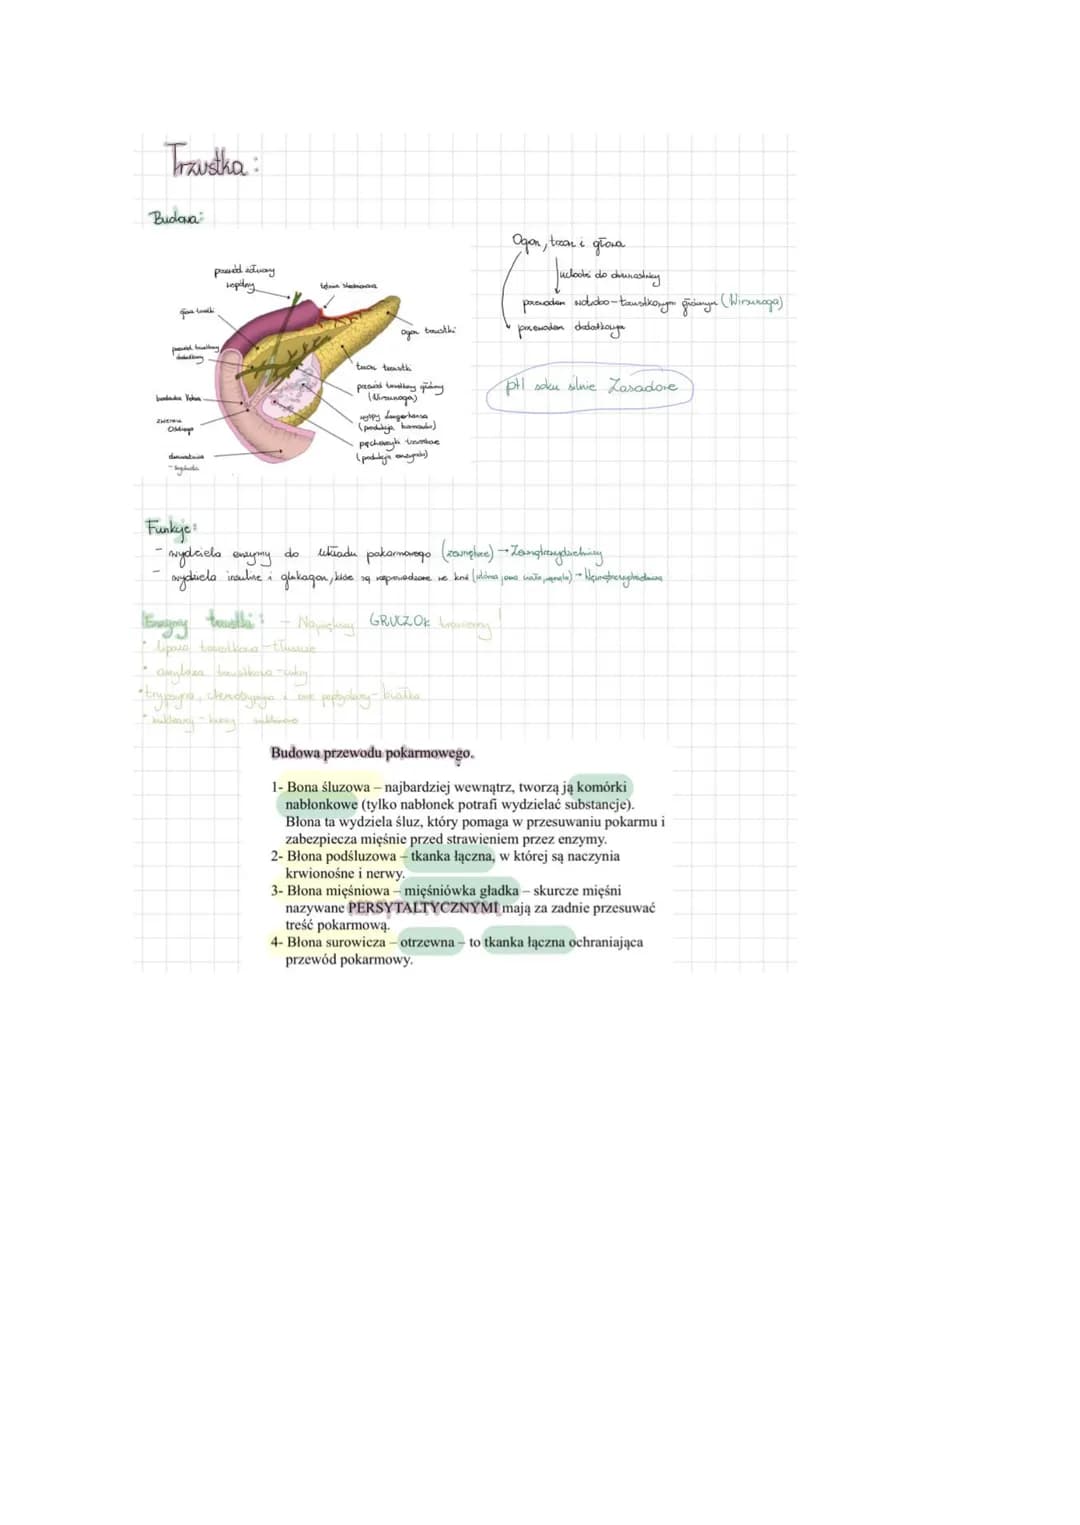 Trzustka:
Budowa:
przewód żółciowy
wspólny
tętnica śledzionowa
głowa trzustki
ogon trzustki
przewód trzustkowy
dodatkowy
trzon trzustki
przewód trzustkowy główny
(Wirsunga)
brodawka Vatera
zwieracz
Oddiego
wyspy Langerhansa
(produkcja hormonów)
pęcherzyki trzustkowe
(produkcja enzymów)
dwunastnica
Ogon, trzon i głowa
uchodzi do dwunastnicy
przewodem wątrobo-trzustkowym głównym (Wirsunoga)
przewodem dodatkowym
pH soku silnie Zasadowe
Funkcje:
- wydziela enzymy do układu pokarmowego (zewnętrzne) → Zewnątrzwydzielniczy
- wydziela insulinę i glukagon, które są naprowadzane we krwi
Enzymy trzustki: - Największy GRUCZOŁ trawienny!
• lipaza trzustkowa - tłuszcze
• amylaza trzustkowa - cukry
• trypsyna, chemotrypsyna i inne peptydazy - białka
• nukleazy - kwasy nukleinowe
Budowa przewodu pokarmowego.
1- Bona śluzowa – najbardziej wewnątrz, tworzą ją komórki
nabłonkowe (tylko nabłonek potrafi wydzielać substancje).
Błona ta wydziela śluz, który pomaga w przesuwaniu pokarmu i
zabezpiecza mięśnie przed strawieniem przez enzymy.
2- Błona podśluzowa – tkanka łączna, w której są naczynia
krwionośne i nerwy.
3- Błona mięśniowa – mięśniówka gładka – skurcze mięśni
nazywane PERSYTALTYCZNYMI mają za zadnie przesuwać
treść pokarmową.
4- Błona surowicza – otrzewna – to tkanka łączna ochraniająca
przewód pokarmowy.